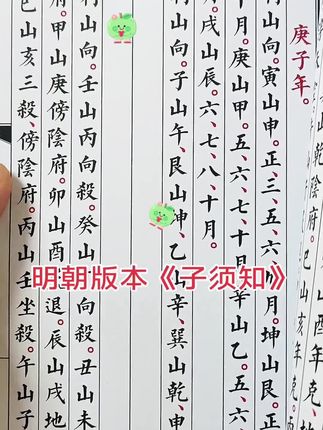 庚子年。
山向。寅山申。正、三、五、六、月。坤山艮。正、
十月。庚山甲。五、六、七、十月。辛山乙。五、六、
月。戌山辰。六、七、八、十月。
山向。子山午、艮山坤、乙山辛、巽山乾、申
山向。壬山丙向殺。癸山向殺。丑山未
府。甲山庚傍陰府。卯山酉退。辰山戌地
巳山亥三殺、傍陰府。丙山壬坐殺。午山子
明朝版本《子须知》